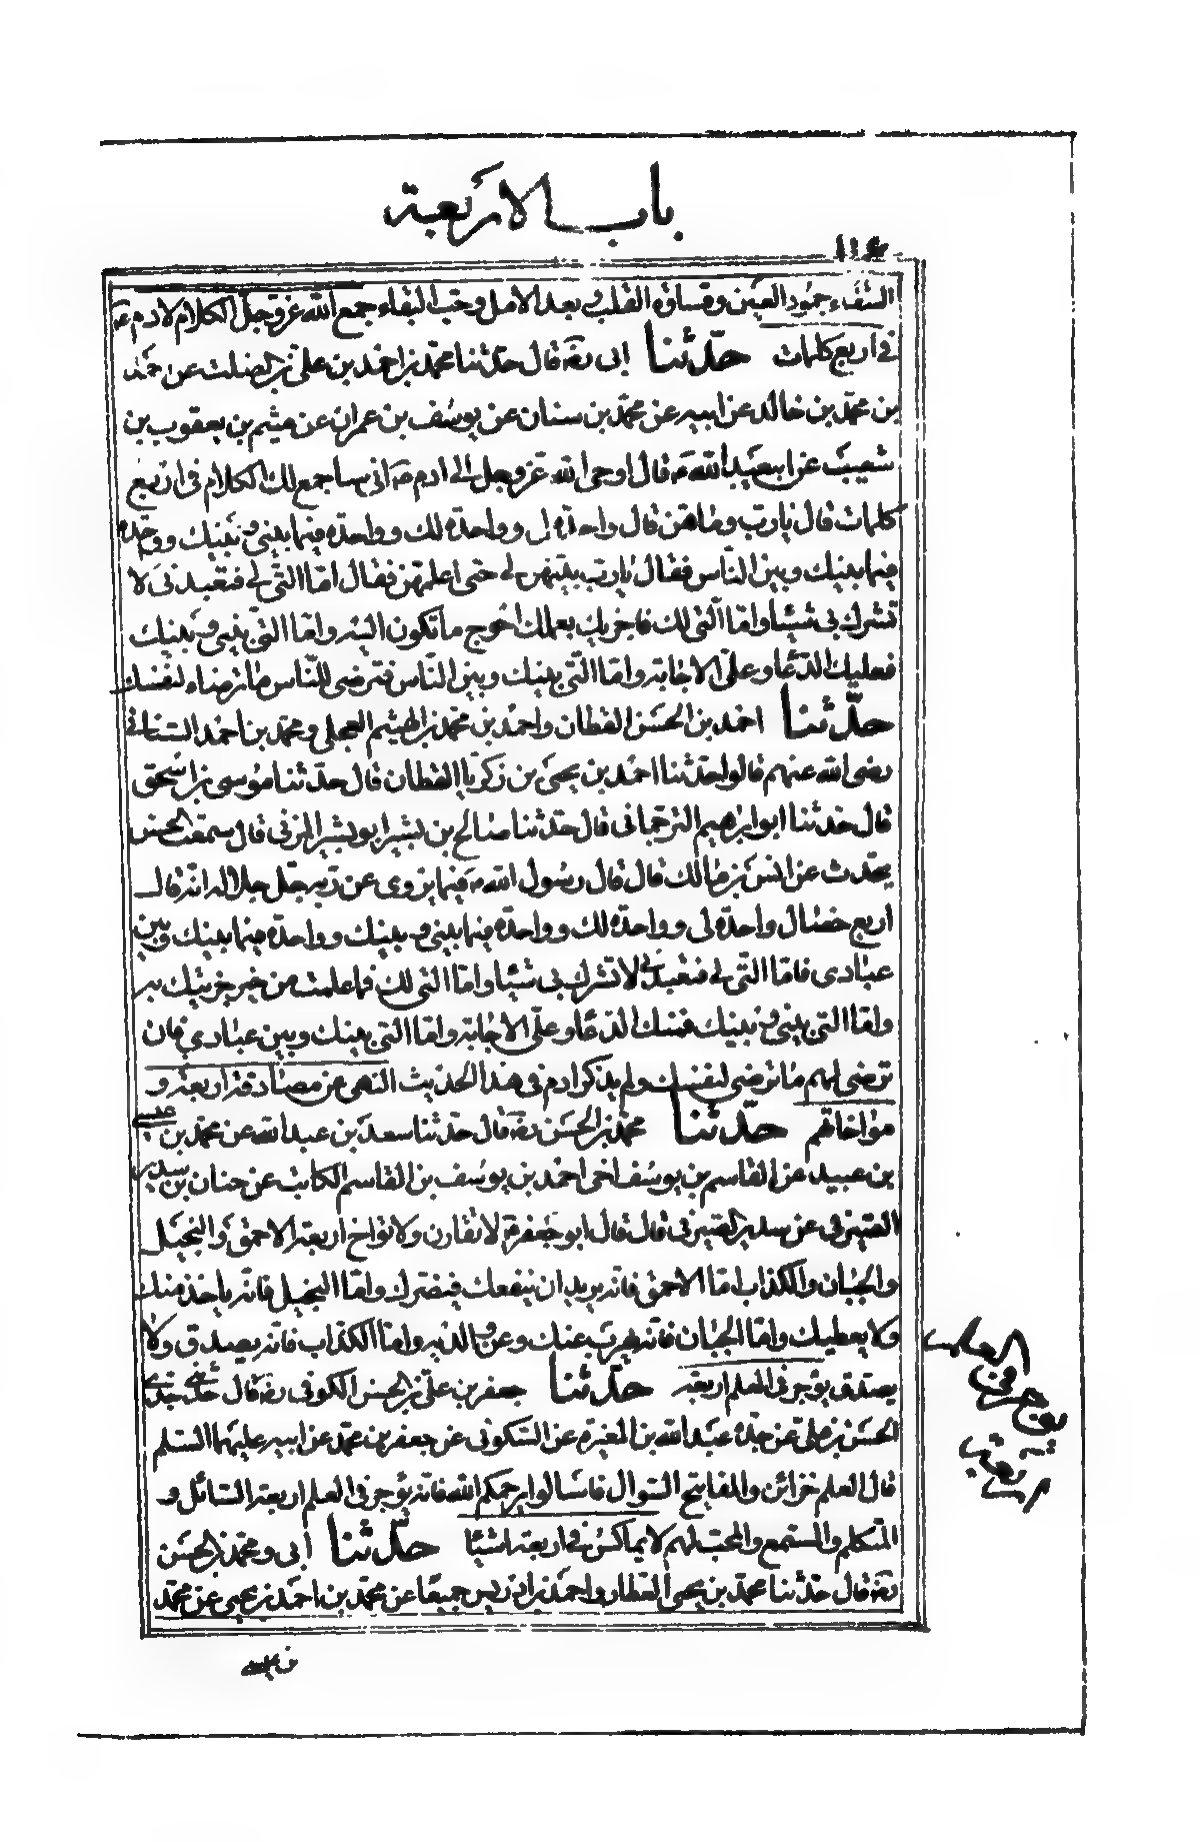 باب الاربعة
١١٤
الشقاء جمود العين وقساوة القلب وبعد الامل وحب البقاء جمع الله عزوجل الكلام لادم ع
في اربع كلمات حدثنا ابى ره قال حدثنا محمد بن احمد بن على بن الصلت عن احمد
بن محمد بن خالد عن ابيه عن محمد بن سنان عن يوسف بن عمران عن ميثم بن يعقوب بن
شعيب عن ابيعبد الله ع قال اوحى الله عزوجل الى ادم ع انى ساجمع لك الكلام فى اربع
كلمات قال يا رب وما هن قال واحدة لى وواحدة لك وواحدة فيما بينى وبينك وواحدة
فيما بينك وبين الناس فقال يا رب بينهن لى حتى اعلمهن فقال اما التى لى فتعبدنى لا
تشرك بى شيئا واما التى لك فاجزيك بعملك احوج ما تكون اليه واما التى بينى وبينك
فعليك الدعا وعلى الاجابة واما التى بينك وبين الناس فترضى للناس ما ترضاه لنفسك
حدثنا احمد بن الحسن القطان واحمد بن محمد بن الهيثم العجلى ومحمد بن احمد السنانى
رضى الله عنهم قالوا حدثنا احمد بن يحيى بن زكريا القطان قال حدثنا موسى بن اسحق
قال حدثنا ابو ابراهيم الترجمانى قال حدثنا صالح بن بشير ابو بشر المزنى قال سمعت الحسن
يحدث عن انس بن مالك قال قال رسول الله ص فيما يروى عن ربه جل جلاله انه قال
اربع خصال واحدة لى وواحدة لك وواحدة فيما بينى وبينك وواحدة فيما بينك وبين
عبادى فاما التى لى فتعبدنى لا تشرك بى شيئا واما التى لك فما عملت من خير جزيتك به
واما التى بينى وبينك فمنك الدعا وعلى الاجابة واما التى بينك وبين عبادي فان
ترضى لهم ما ترضى لنفسك ولم يذكر ادم فى هذا الحديث النهى عن مصادقة اربعة و
مواخاتهم حدثنا محمد بن الحسن ره قال حدثنا سعد بن عبد الله عن محمد بن عيسى
بن عبيد عن القاسم بن يوسف اخى احمد بن يوسف بن القاسم الكاتب عن حنان بن سدير
الصيرفى عن سدير الصيرفى قال قال ابو جعفر ع لا تقارن ولا تواخ اربعة الاحمق والبخيل
والجبان والكذاب اما الاحمق فانه يريد ان ينفعك فيضرك واما البخيل فانه ياخذ منك
ولا يعطيك واما الجبان فانه يهرب عنك وعن والديه واما الكذاب فانه يصدق ولا
يصدق يوجر فى العلم اربعة حدثنا جعفر بن على بن الحسن الكوفى ره قال حدثنى جدى
الحسن بن على عن جده عبد الله بن المغيرة عن السكونى عن جعفر بن محمد عن ابيه عليهما السلم
قال العلم خزائن والمفاتيح السوال فاسالوا يرحمكم الله فانه يؤجر فى العلم اربعة السائل و
المتكلم والمستمع والمحب لهم لا يماكس فى اربعة اشيا حدثنا أبى ومحمد بن الحسن
ره قال حدثنا محمد بن يحيى العطار واحمد بن ادريس جميعا عن محمد بن احمد بن يحيى عن محمد
يوجر فى العلم
اربعة